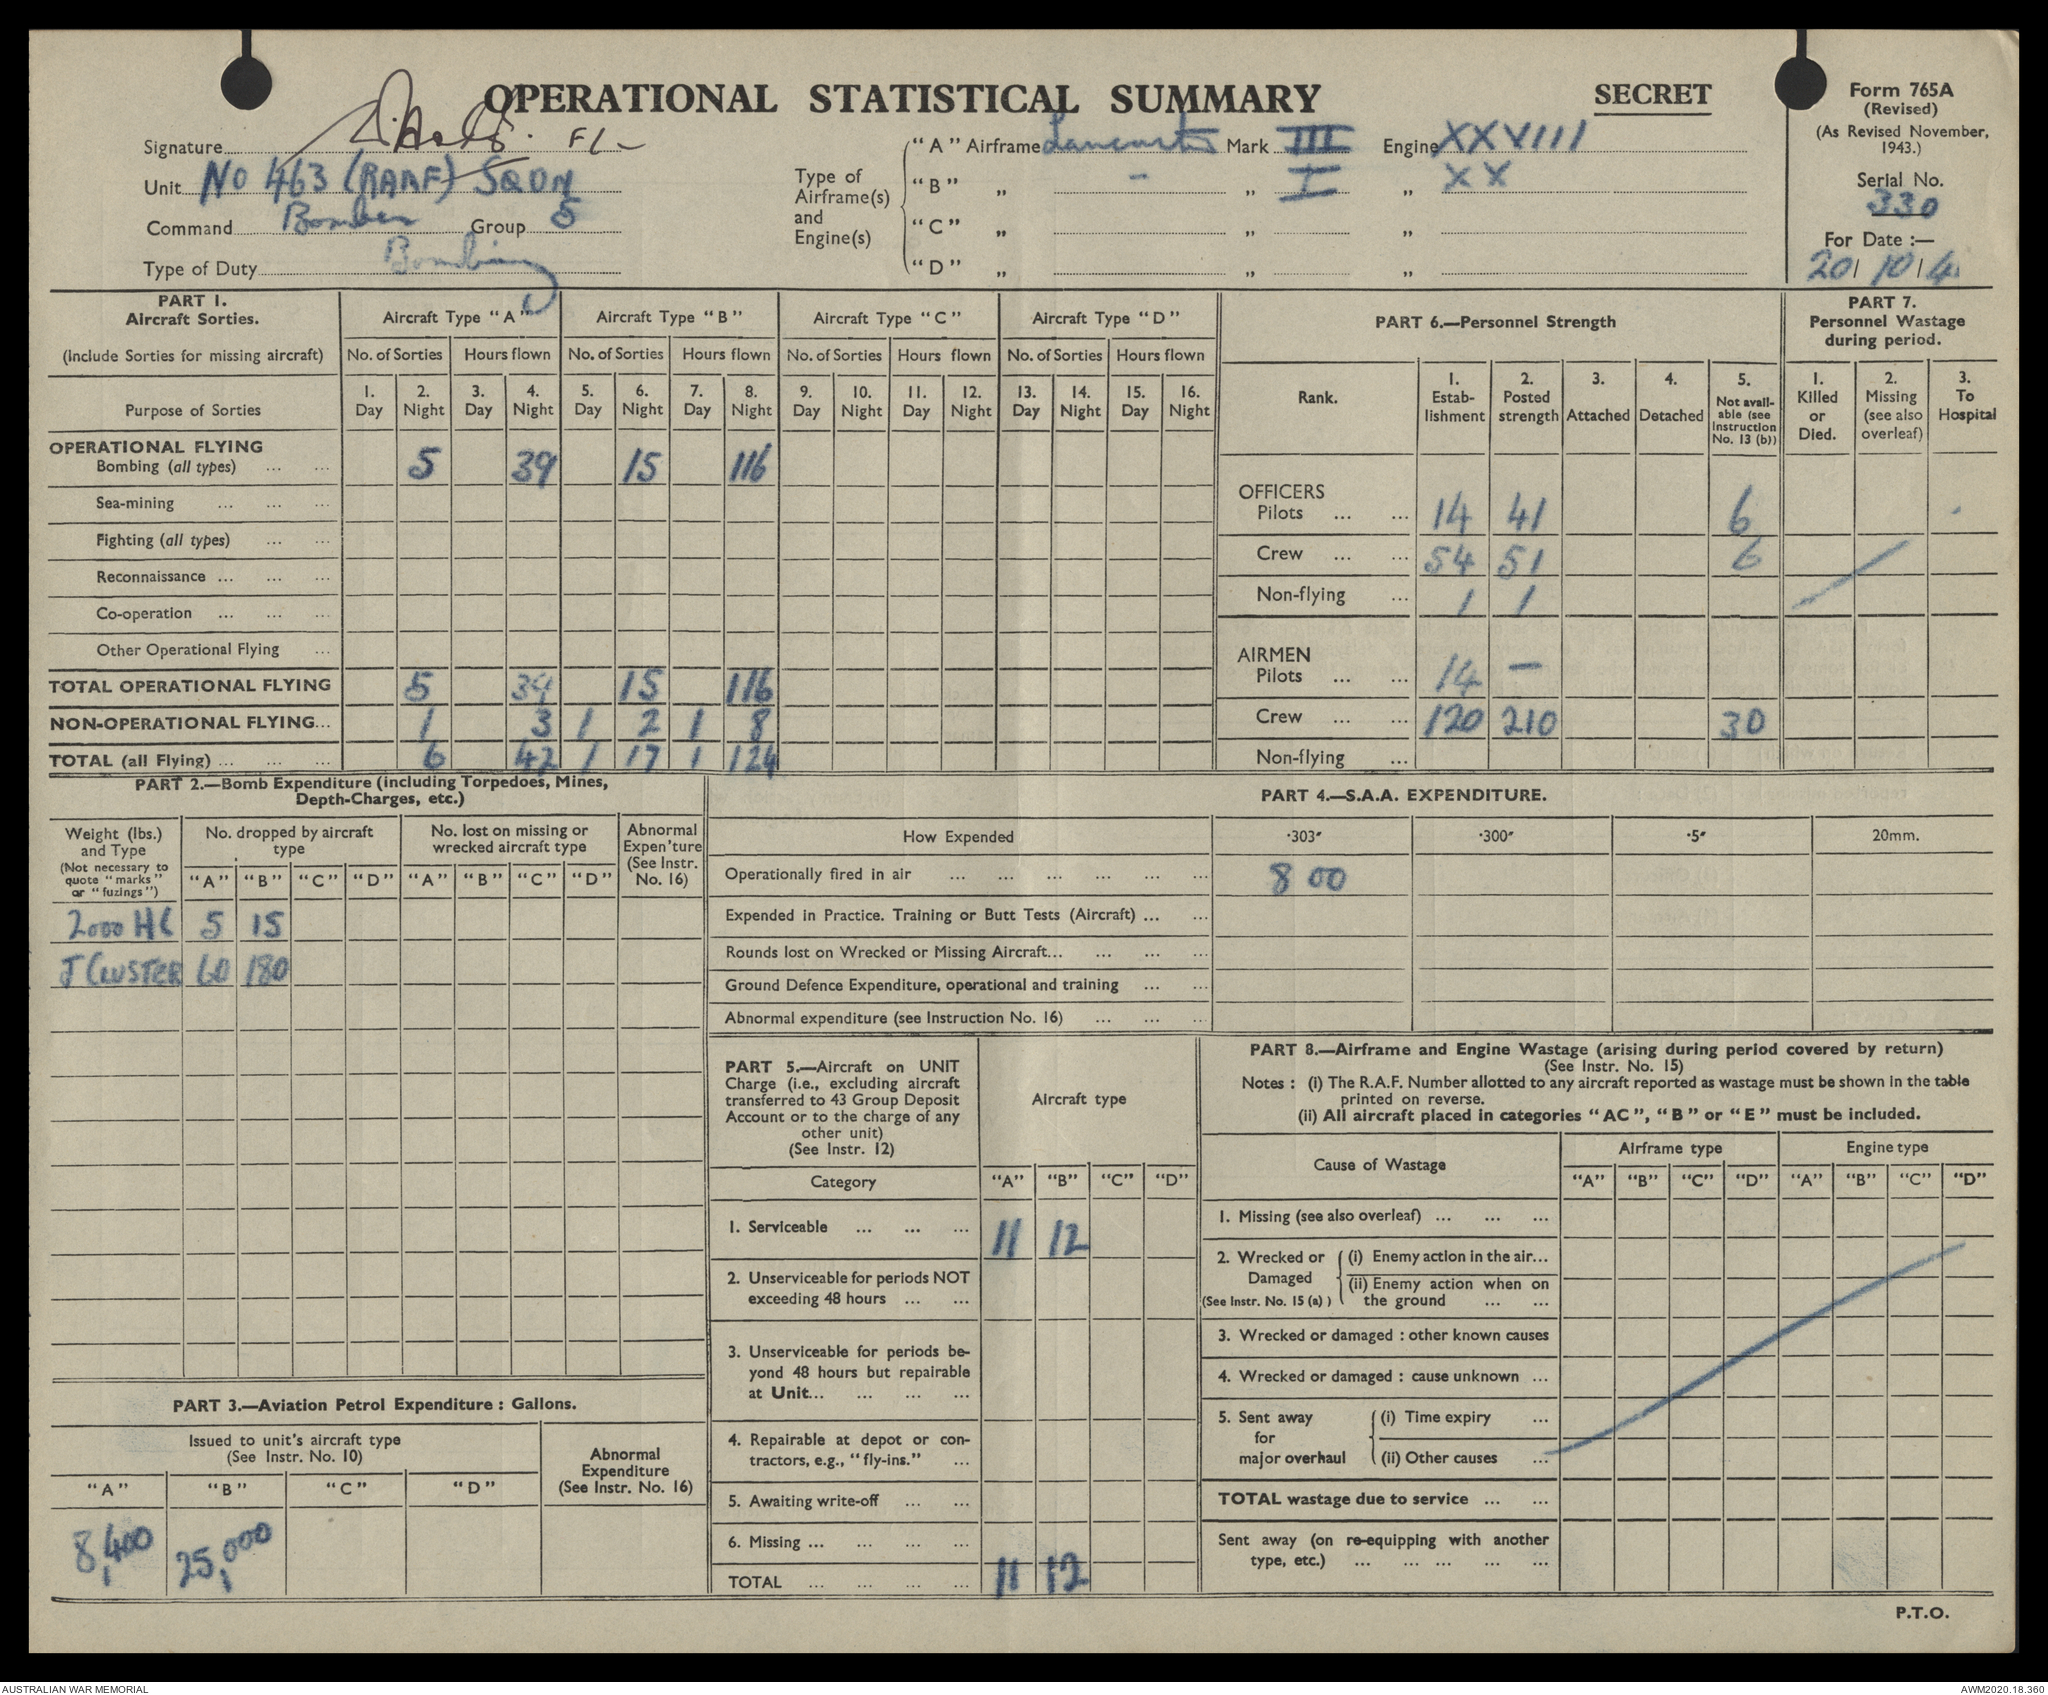 OPERATIONAL STATISTICAL SUMMARY
SECRET
Form 765A
(Revised)
(As Revised November, 1943.)
Serial No.
330
For Date :—
20/ 10 / 4
Signature
F/-
Unit No 463 (RAAF) SQDN
Command Bomber Group 5
Type of Duty Bombing
Type of Airframe(s) and Engine(s)
"A" Airframe Lancaster Mark III Engine XXVIII
"B" „ - „ I „ XX
"C" „ „ „
"D" „ „ „
PART 1.
Aircraft Sorties.
(Include Sorties for missing aircraft)
Aircraft Type "A" Aircraft Type "B" Aircraft Type "C" Aircraft Type "D"
No. of Sorties Hours flown No. of Sorties Hours flown No. of Sorties Hours flown No. of Sorties Hours flown
Purpose of Sorties
1. Day 2. Night 3. Day 4. Night 5. Day 6. Night 7. Day 8. Night 9. Day 10. Night 11. Day 12. Night 13. Day 14. Night 15. Day 16. Night
OPERATIONAL FLYING
Bombing (all types) ... ... 5 39 15 116
Sea-mining ... ... ...
Fighting (all types) ... ...
Reconnaissance ... ... ...
Co-operation ... ... ...
Other Operational Flying ...
TOTAL OPERATIONAL FLYING 5 39 15 116
NON-OPERATIONAL FLYING... 1 3 1 2 1 8
TOTAL (all Flying) ... ... ... 6 42 1 17 1 124
PART 6.—Personnel Strength
Rank.
1. Estab-lishment
2. Posted strength
3. Attached
4. Detached
5. Not avail-able (see Instruction No. 13 (b))
OFFICERS
Pilots ... ... 14 41 6
Crew ... ... 54 51 6
Non-flying ... 1 1
AIRMEN
Pilots ... ... 14 —
Crew ... ... 120 210 30
Non-flying ...
PART 7.
Personnel Wastage during period.
1. Killed or Died.
2. Missing (see also overleaf)
3. To Hospital
PART 2.—Bomb Expenditure (including Torpedoes, Mines, Depth-Charges, etc.)
Weight (lbs.) and Type
(Not necessary to quote "marks" or "fuzings")
No. dropped by aircraft type
No. lost on missing or wrecked aircraft type
Abnormal Expen'ture (See Instr. No. 16)
"A" "B" "C" "D" "A" "B" "C" "D"
2000 HC 5 15
J CLUSTER 60 180
PART 3.—Aviation Petrol Expenditure : Gallons.
Issued to unit's aircraft type
(See Instr. No. 10)
Abnormal Expenditure (See Instr. No. 16)
"A" "B" "C" "D"
8,400 25,000
PART 4.—S.A.A. EXPENDITURE.
How Expended ·303″ ·300″ ·5″ 20mm.
Operationally fired in air ... ... ... ... ... ... 800
Expended in Practice. Training or Butt Tests (Aircraft) ... ...
Rounds lost on Wrecked or Missing Aircraft... ... ... ...
Ground Defence Expenditure, operational and training ... ...
Abnormal expenditure (see Instruction No. 16) ... ... ...
PART 5.—Aircraft on UNIT
Charge (i.e., excluding aircraft
transferred to 43 Group Deposit
Account or to the charge of any
other unit)
(See Instr. 12)
Aircraft type
Category "A" "B" "C" "D"
1. Serviceable ... ... ... 11 12
2. Unserviceable for periods NOT
exceeding 48 hours ... ...
3. Unserviceable for periods be-
yond 48 hours but repairable
at Unit... ... ... ...
4. Repairable at depot or con-
tractors, e.g., "fly-ins." ...
5. Awaiting write-off ... ...
6. Missing ... ... ... ...
TOTAL ... ... ... ... 11 12
PART 8.—Airframe and Engine Wastage (arising during period covered by return)
(See Instr. No. 15)
Notes : (i) The R.A.F. Number allotted to any aircraft reported as wastage must be shown in the table
printed on reverse.
(ii) All aircraft placed in categories "AC", "B" or "E" must be included.
Cause of Wastage
Airframe type Engine type
"A" "B" "C" "D" "A" "B" "C" "D"
1. Missing (see also overleaf) ... ... ...
2. Wrecked or Damaged (See Instr. No. 15 (a) )
(i) Enemy action in the air...
(ii) Enemy action when on
the ground ... ...
3. Wrecked or damaged : other known causes
4. Wrecked or damaged : cause unknown ...
5. Sent away for major overhaul
(i) Time expiry ...
(ii) Other causes ...
TOTAL wastage due to service ... ...
Sent away (on re-equipping with another
type, etc.) ... ... ... ... ...
P.T.O.
AUSTRALIAN WAR MEMORIAL
AWM2020.18.360